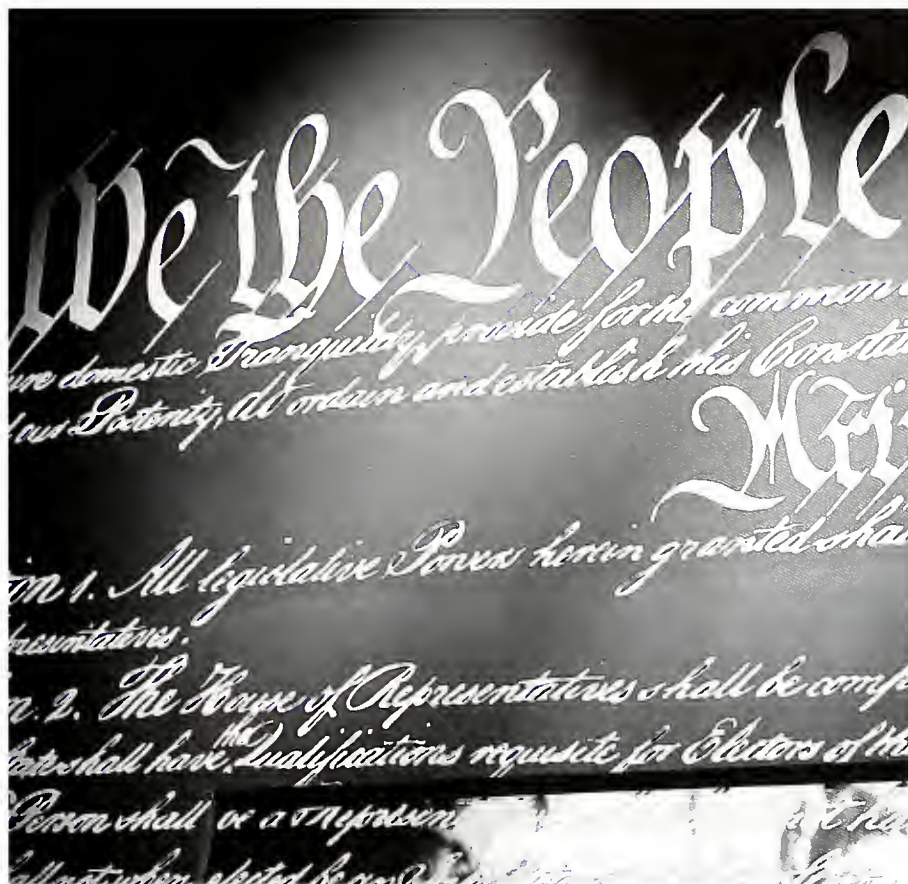 We the People
ure domestic Tranquility, provide for the common
our Posterity, do ordain and establish this Constit
Arti
ion 1. All legislative Powers herein granted shal
presentatives.
n. 2. The House of Representatives shall be comp
State shall have the Qualifications requisite for Electors of the
Person shall be a Represen
all not when elected be an